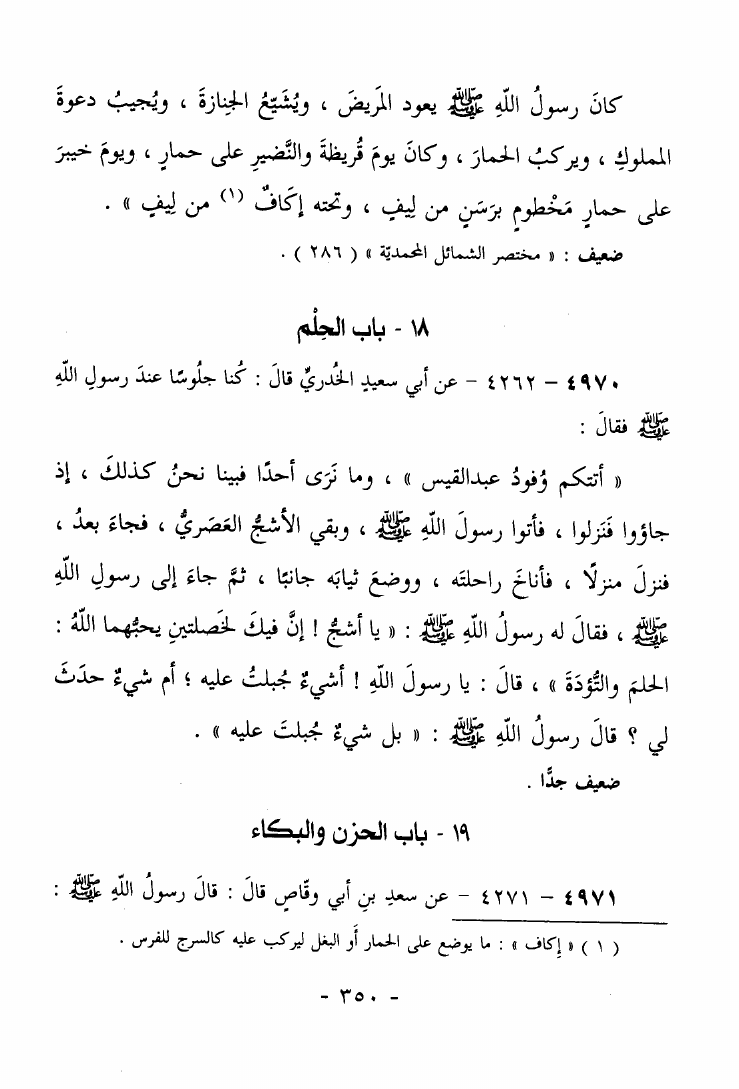 كانَ رسولُ اللّهِ ﷺ يعود المَريضَ ، ويُشَيّعُ الجِنازةَ ، ويُجيبُ دعوةَ
المملوكِ ، ويركبُ الحمارَ ، وكانَ يومَ قُريظةَ والنَّضيرِ على حمارٍ ، ويومَ خيبرَ
على حمارٍ مَخْطومٍ برَسَنٍ من لِيفٍ ، وتحته إكَافٌ (١) من لِيفٍ » .
ضعيف : « مختصر الشمائل المحمديّة » ( ٢٨٦ ) .
١٨ - باب الحِلْم
٤٩٧٠ – ٤٢٦٢ – عن أبي سعيدٍ الخُدريِّ قالَ : كُنا جلُوسًا عندَ رسولِ اللّهِ
ﷺ فقالَ :
« أتتكم وُفودُ عبدالقيس » ، وما نَرَى أحدًا فبينا نحنُ كذلكَ ، إذ
جاؤوا فَنَزلوا ، فأتوا رسولَ اللّهِ ﷺ ، وبقي الأشجُّ العَصَريُّ ، فجاءَ بعدُ ،
فنزلَ منزلًا ، فأناخَ راحلتَه ، ووضعَ ثيابَه جانبًا ، ثمَّ جاءَ إلى رسولِ اللّهِ
ﷺ ، فقالَ له رسولُ اللّهِ ﷺ : « يا أشجُّ ! إنَّ فيكَ لخَصلتينِ يحبُّهما اللّهُ :
الحلمَ والتُّؤدَةَ » ، قالَ : يا رسولَ اللّهِ ! أشيءٌ جُبلتُ عليه ؛ أم شيءٌ حدَثَ
لي ؟ قالَ رسولُ اللّهِ ﷺ : « بل شيءٌ جُبلتَ عليه » .
ضعيف جدًّا .
١٩ - باب الحزن والبكاء
٤٩٧١ – ٤٢٧١ – عن سعدِ بنِ أبي وقّاصٍ قالَ : قالَ رسولُ اللّهِ ﷺ :
( ١ ) « إِكاف » : ما يوضع على الحمار أَو البغل ليركب عليه كالسرج للفرس .
- ٣٥٠ -